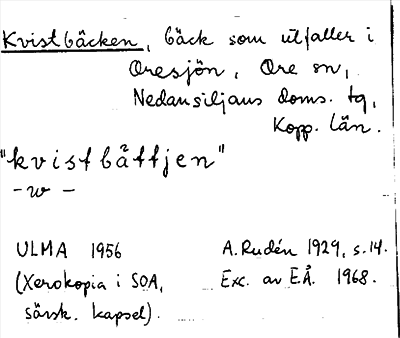 Kvistbäcken, bäck som utfaller i
Oresjön, Ore sn,
Nedansiljans doms. tg,
Kopp. län.
"kvistbåttjen"
- w -
ULMA 1956
(Xerokopia i SOA,
särsk. kapsel).
A. Rudén 1929, s. 14.
Exc. av E.Å. 1968.